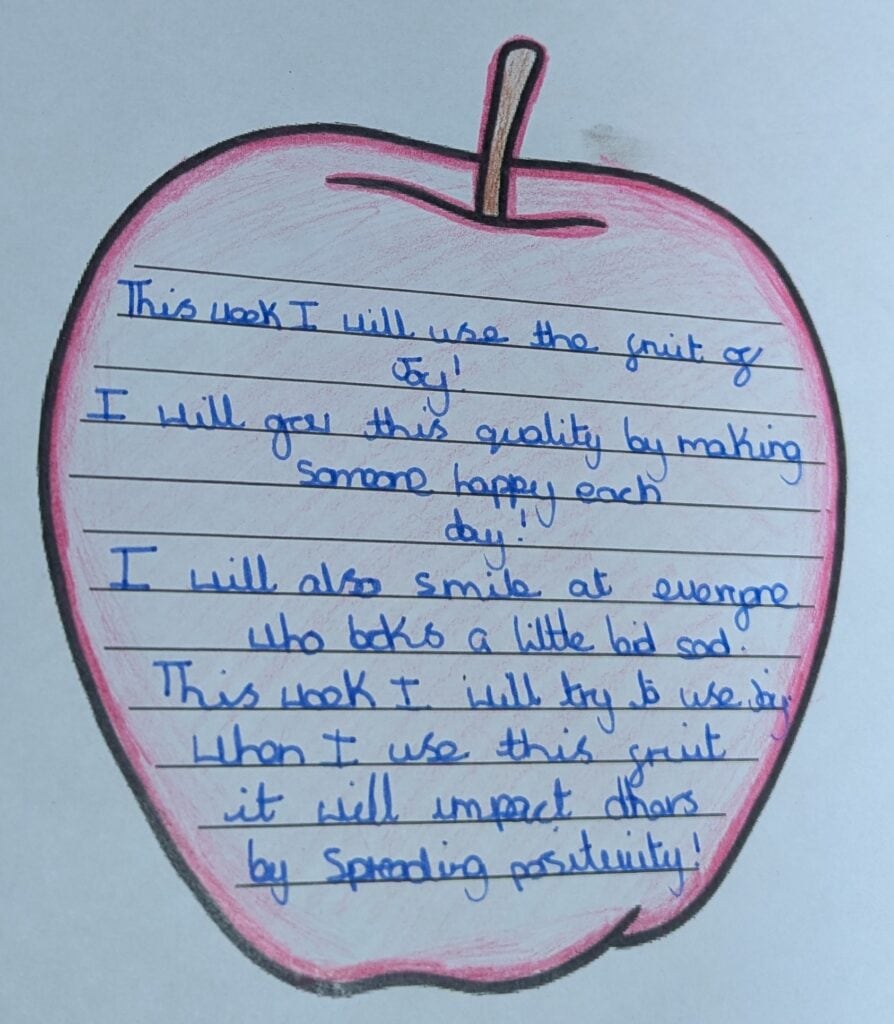 This week I will use the fruit of
Joy!
I will grow this quality by making
someone happy each
day!
I will also smile at everyone
who looks a little bid sad.
This week I will try to use joy
When I use this fruit
it will impact others
by spreading positivity!